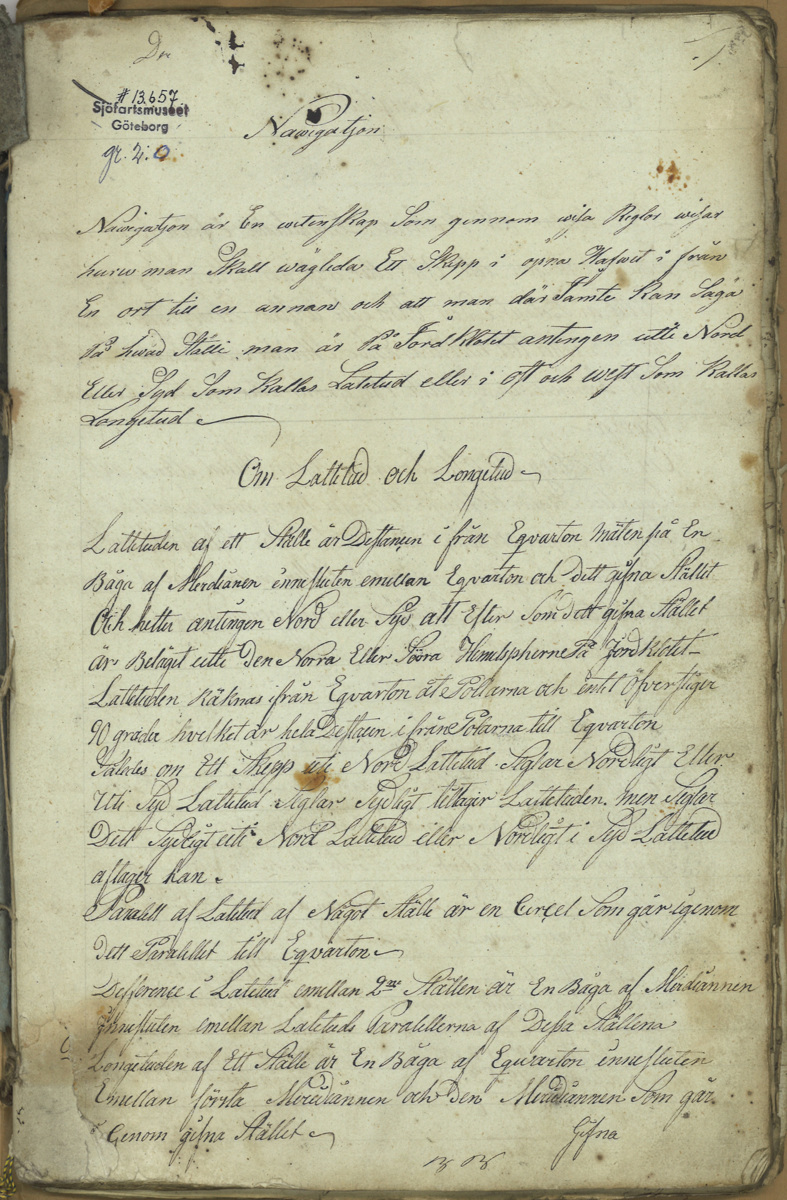 # 13.657
Sjöfartsmuseet
Göteborg
gr. 2:0
Nawigatjon
Nawigatjon är En wetenskap Som gennom wisa Reglor wisar
huru man Skall wägleda Ett Skepp i öpna Hafwet i från
En ort till en annan och att man där Jämte kan Säga
På hwad Ställe man är På Jordklotet antingen utti Nord
Eller Syd Som Kallas Latetud eller i Ost och west Som Kallas
Longetud
Om Lattetud och Longetud
Lattetuden af ett Ställe är Destansen i från Eqvarton mäten på En
Båga af Merdianen innesluten emellan Eqvarton och dett gifna Stället
Och hetter antingen Nord eller Syd att Efter Som dett gifna Stället
är Beläget utti Den Norra Eller Söra Hemelspherne På Jordklotet
Lattetuden Räknas ifrån Eqvarton åt Pollarna och intet öfverstiger
90 grader hvelket är hela Destansen ifrån Polarna till Eqvarton
Således om Ett Skepp uti Nord Lattetud Seglar Nordligt Eller
Uti Syd Lattetud Seglar Sydligt tilltager Lattetuden. men Seglar
Dett Sydligt utti Nord Lattetud eller Nordligt i Syd Lattetud
aftager han.
Paralell af Latetud af Något Ställe är en Circel Som går igenom
dett Paralellet till Eqvarton
Defference i Latetud emellan 2ne Ställen är En Båga af Merdiannen
innesluten emellan Latetuds Paralellerna af Dessa Ställena
Longetuden af Ett Ställe är En Båga af Eqvarton innesluten
Emellan första Merediannen och Den Merediannen Som går
Genom gifna Stället
Gifna